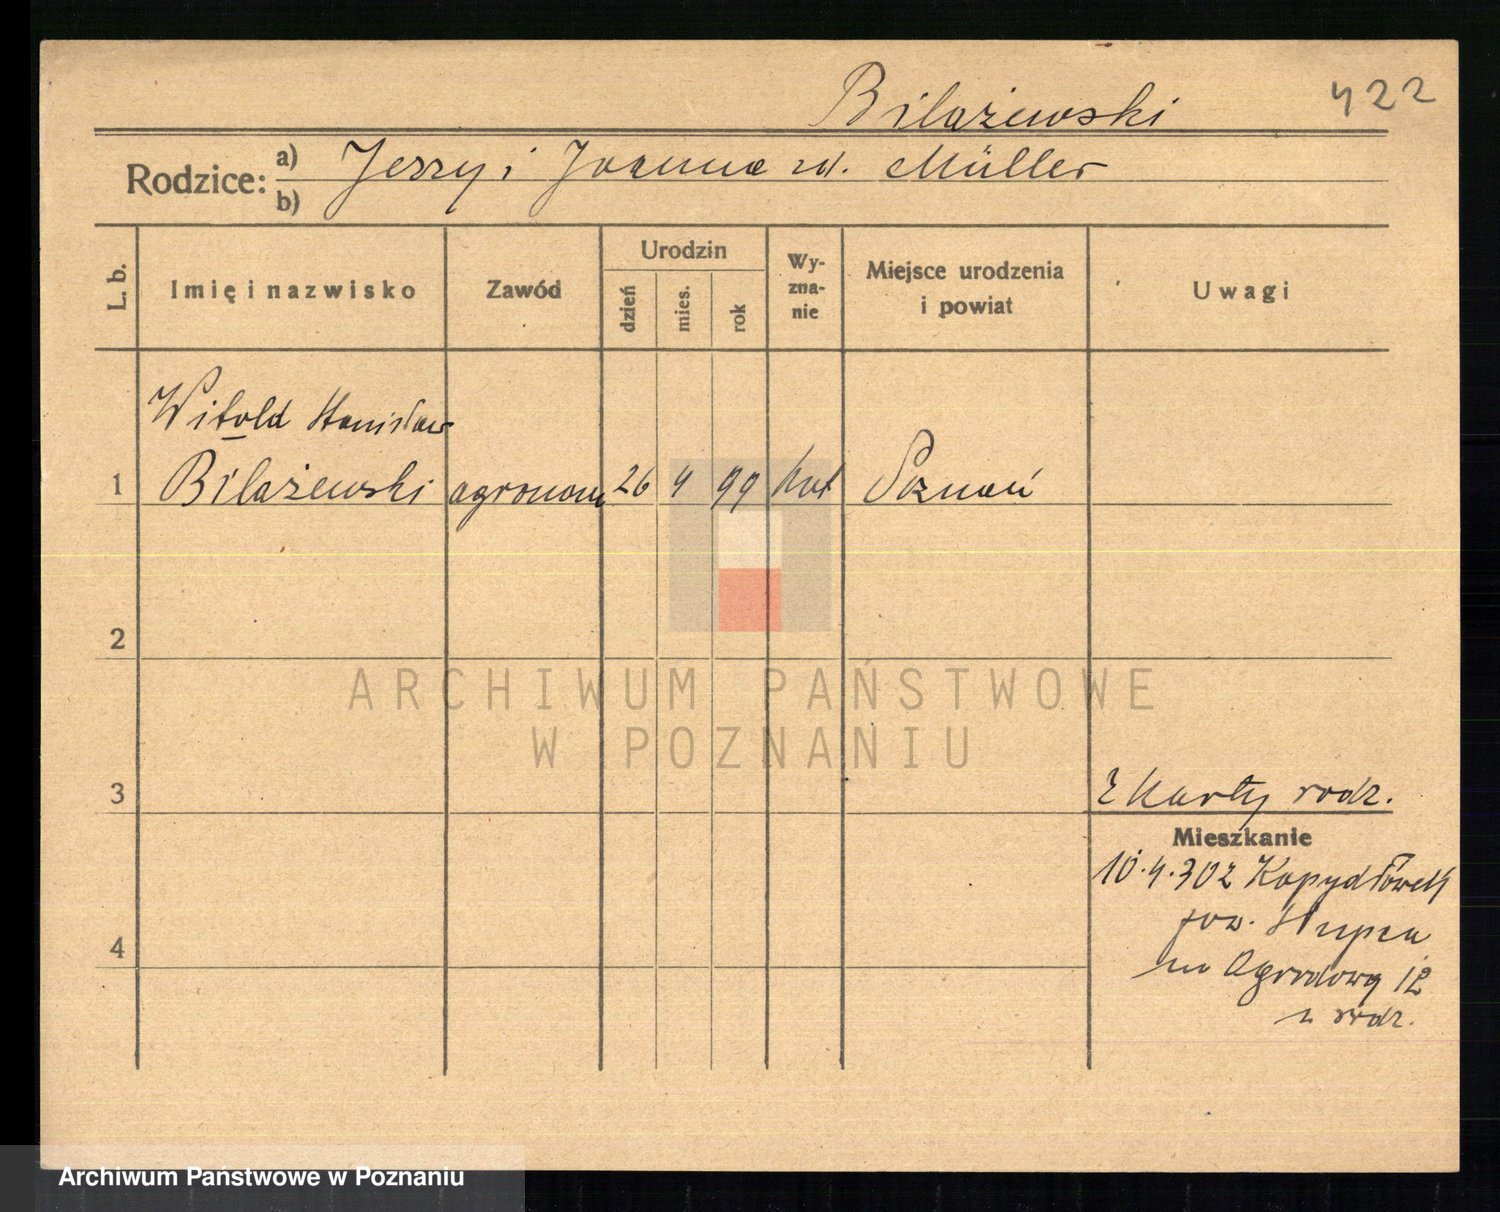 Bilażewski 422
Rodzice: a) b) Jerzy i Joanna zd. Müller
L. b.
Imię i nazwisko
Zawód
Urodzin
dzień
mies.
rok
Wy-
zna-
nie
Miejsce urodzenia
i powiat
Uwagi
Witold Stanisław
1 Bilażewski agronom 26 4 99 kat Poznań
2
ARCHIWUM PAŃSTWOWE
W POZNANIU
3
z karty rodz.
Mieszkanie
10.4.30 z Kopydłówek
pow. Słupca
4
na Ogrodową 12
z rodz.
Archiwum Państwowe w Poznaniu